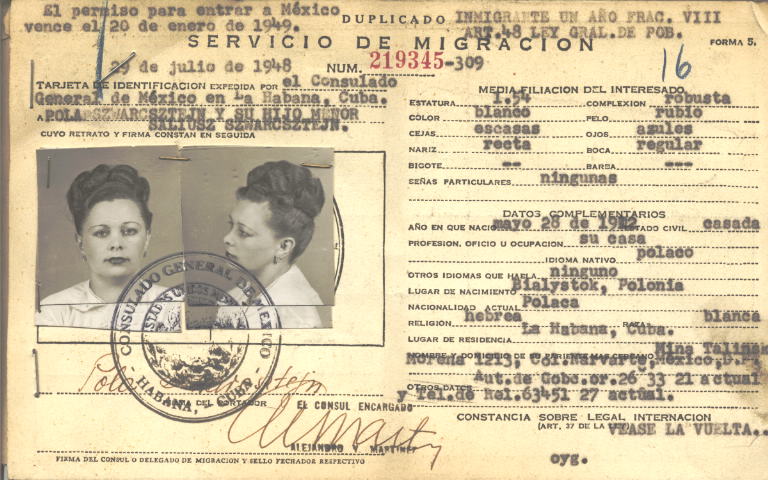 El permiso para entrar a México
vence el 20 de enero de 1949.
DUPLICADO
INMIGRANTE UN AÑO FRAC. VIII
ART.48 LEY GRAL.DE POB.
SERVICIO DE MIGRACION
FORMA 5.
29 de julio de 1948
NUM. 219345-309
16
TARJETA DE IDENTIFICACION EXPEDIDA POR el Consulado
General de México en La Habana, Cuba.
A POLA SZWARCSZTEJN Y SU HIJO MENOR
SALIUSZ SZWARCSZTEJN.
CUYO RETRATO Y FIRMA CONSTAN EN SEGUIDA
MEDIA FILIACION DEL INTERESADO
ESTATURA 1.54 COMPLEXION robusta
COLOR blanco PELO rubio
CEJAS escasas OJOS azules
NARIZ recta BOCA regular
BIGOTE -- BARBA ---
SEÑAS PARTICULARES ningunas
DATOS COMPLEMENTARIOS
AÑO EN QUE NACIO mayo 28 de ESTADO CIVIL casada
PROFESION, OFICIO U OCUPACION su casa
IDIOMA NATIVO polaco
OTROS IDIOMAS QUE HABLA ninguno
LUGAR DE NACIMIENTO Bialystok, Polonia
NACIONALIDAD ACTUAL Polaca
RELIGIÓN hebrea RAZA blanca
LUGAR DE RESIDENCIA La Habana, Cuba.
NOMBRE Y DOMICILIO DE SU PARIENTE MAS CERCANO Mina Talinsk
Morena 1213, Col.Narvarte, México, D.F.
OTROS DATOS Aut.de Gob.or.26 33 21 actual
y Tel.de Rel.63451 27 actual.
CONSTANCIA SOBRE LEGAL INTERNACION
(ART. 37 DE LA LEY) VEASE LA VUELTA..
oyg.
CONSULADO GENERAL DE MEXICO
ESTADOS UNIDOS MEXICANOS
- HABANA, - CUBA -
Pola
FIRMA DEL PORTADOR
EL CONSUL ENCARGADO
ALEJANDRO V MARTINEZ
FIRMA DEL CONSUL O DELEGADO DE MIGRACION Y SELLO FECHADOR RESPECTIVO